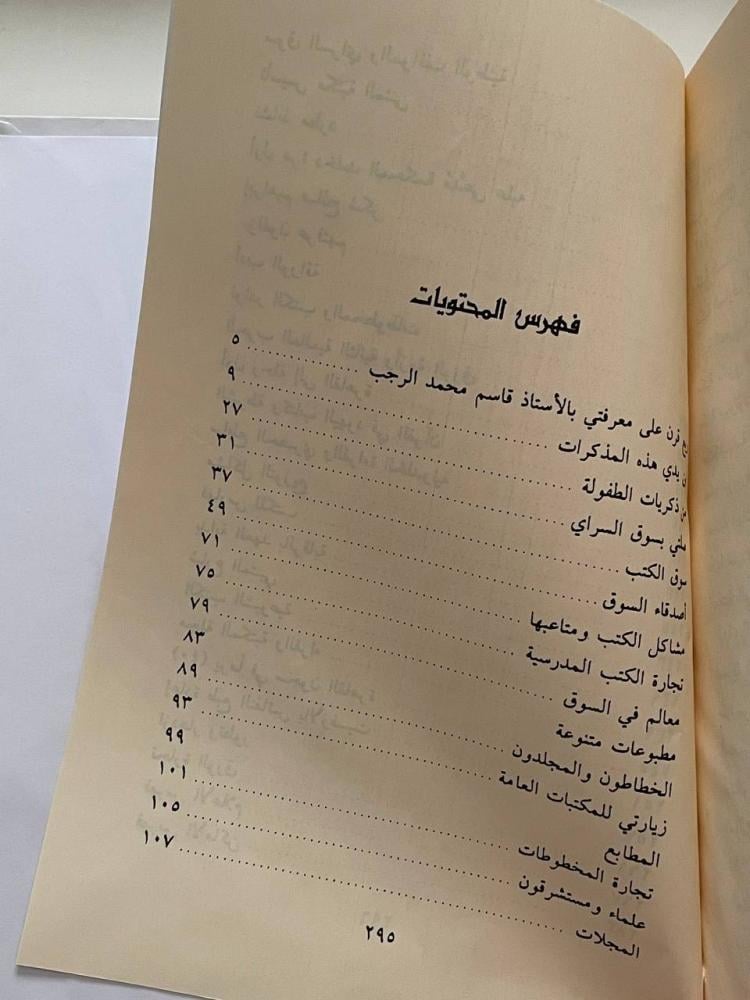 فهرس المحتويات
قرن على معرفتي بالأستاذ قاسم محمد الرجب ٥
يدي هذه المذكرات ٩
من ذكريات الطفولة ٢٧
بسوق السراي ٣١
سوق الكتب ٣٧
أصدقاء السوق ٤٩
مشاكل الكتب ومتاعبها ٧١
تجارة الكتب المدرسية ٧٥
معالم في السوق ٧٩
مطبوعات متنوعة ٨٣
الخطاطون والمجلدون ٨٩
زيارتي للمكتبات العامة ٩٣
المطابع ٩٩
تجارة المخطوطات ١٠١
علماء ومستشرقون ١٠٥
المجلات ١٠٧
٢٩٥